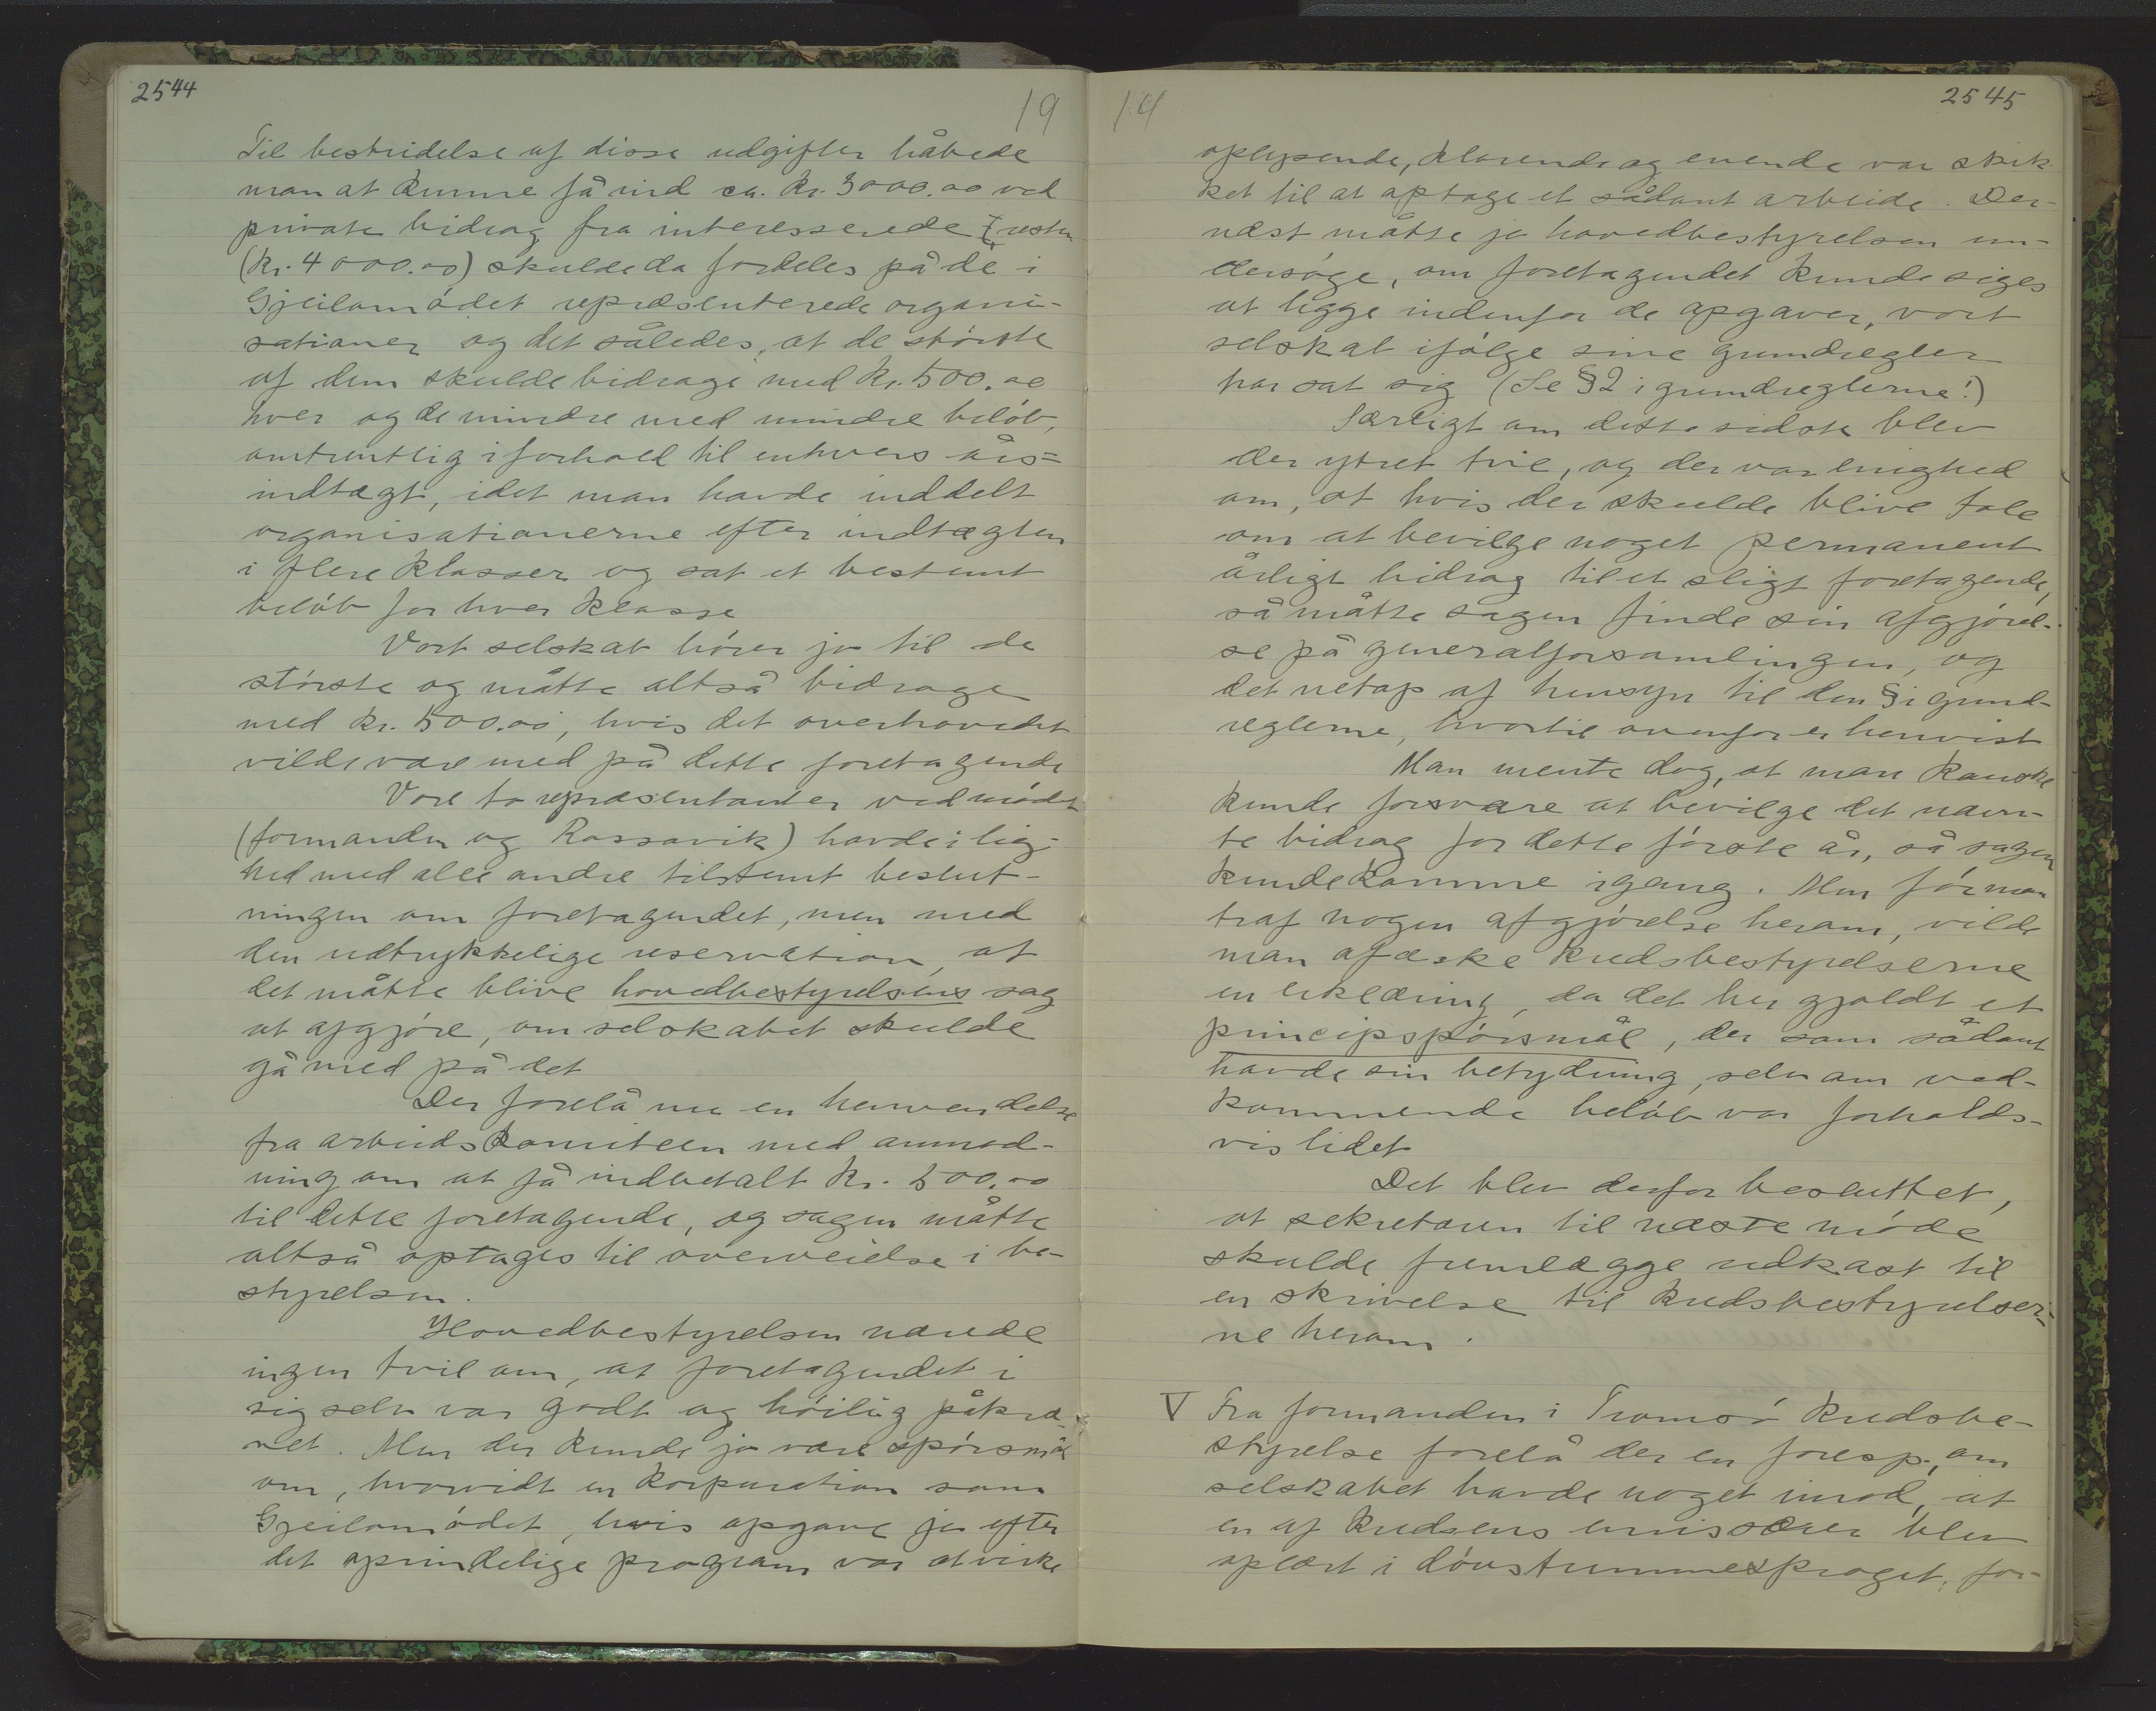 2544
19
Til bestridelse af disse udgifter håbede
man at kunne få ind ca. kr. 3000.00 ved
private bidrag fra interesserede, resten
(kr. 4000.00) skulde da fordeles på de i
Gjeilomödet repræsenterede organi-
sationer og det således, at de störste
af dem skulde bidrage med kr. 500.00
hver og de mindre med mindre belöb,
omtrentlig i forhold til enhvers års=
indtægt, idet man havde inddelt
organisationerne efter indtægten
i flere klasser og sat et bestemt
belöb for hver klasse
Vort selskab hörer jo til de
störste og måtte altså bidrage
med kr. 500.00, hvis det overhovedet
vilde være med på dette foretagende
Vore to repræsentanter ved mödet
(formanden og Rossavik) havde i lig-
hed med alle andre tilstemt beslut-
ningen om foretagendet, men med
den udtrykkelige reservation, at
det måtte blive hovedbestyrelsens sag
at afgjöre, om selskabet skulde
gå med på det
Der forelå nu en henvendelse
fra arbeidskomiteen med anmod-
ning om at få indbetalt kr. 500.00
til dette foretagende, og sagen måtte
altså optages til overveielse i be-
styrelsen.
Hovedbestyrelsen nærede
ingen tvil om, at foretagendet i
sig selv var godt og höilig påkræ-
vet. Men der kunde jo være spörsmål
om, hvorvidt en korporation som
Gjeilomödet, hvis opgave jo efter
det oprindelige program var at virke
14
2545
oplysende, klarende og enende var skik-
ket til at optage et sådant arbeide. Der-
næst måtte jo hovedbestyrelsen un-
dersöge, om foretagendet kunde siges
at ligge indenfor de opgaver, vort
selskab ifölge sine grundregler
har sat sig (Se § 2 i grundreglerne!)
Særligt om dette sidste blev
der ytret tvil, og der var enighed
om, at hvis der skulde blive tale
om at bevilge noget permanent
årligt bidrag til et sligt foretagende,
så måtte sagen finde sin afgjörel-
se på generalforsamlingen, og
det netop af hensyn til den § i grund-
reglerne, hvortil ovenfor er henvist
Man mente dog, at man kanske
kunde forsvare at bevilge det nævn-
te bidrag for dette förste år, så sagen
kunde komme igang. Men för man
traf nogen afgjörelse herom, vilde
man afæske kredsbestyrelserne
en erklæring, da det her gjaldt et
principspörsmål, der som sådant
havde sin betydning, selv om ved-
kommende belöb var forholds-
vis lidet
Det blev derfor besluttet,
at sekretæren til næste möde
skulde fremlægge udkast til
en skrivelse til kredsbestyrelser-
ne herom.
V Fra formanden i Tromsö kredsbe-
styrelse forelå der en foresp., om
selskabet havde noget imod, at
en af kredsens emissærer blev
oplært i dövstummesproget, for-